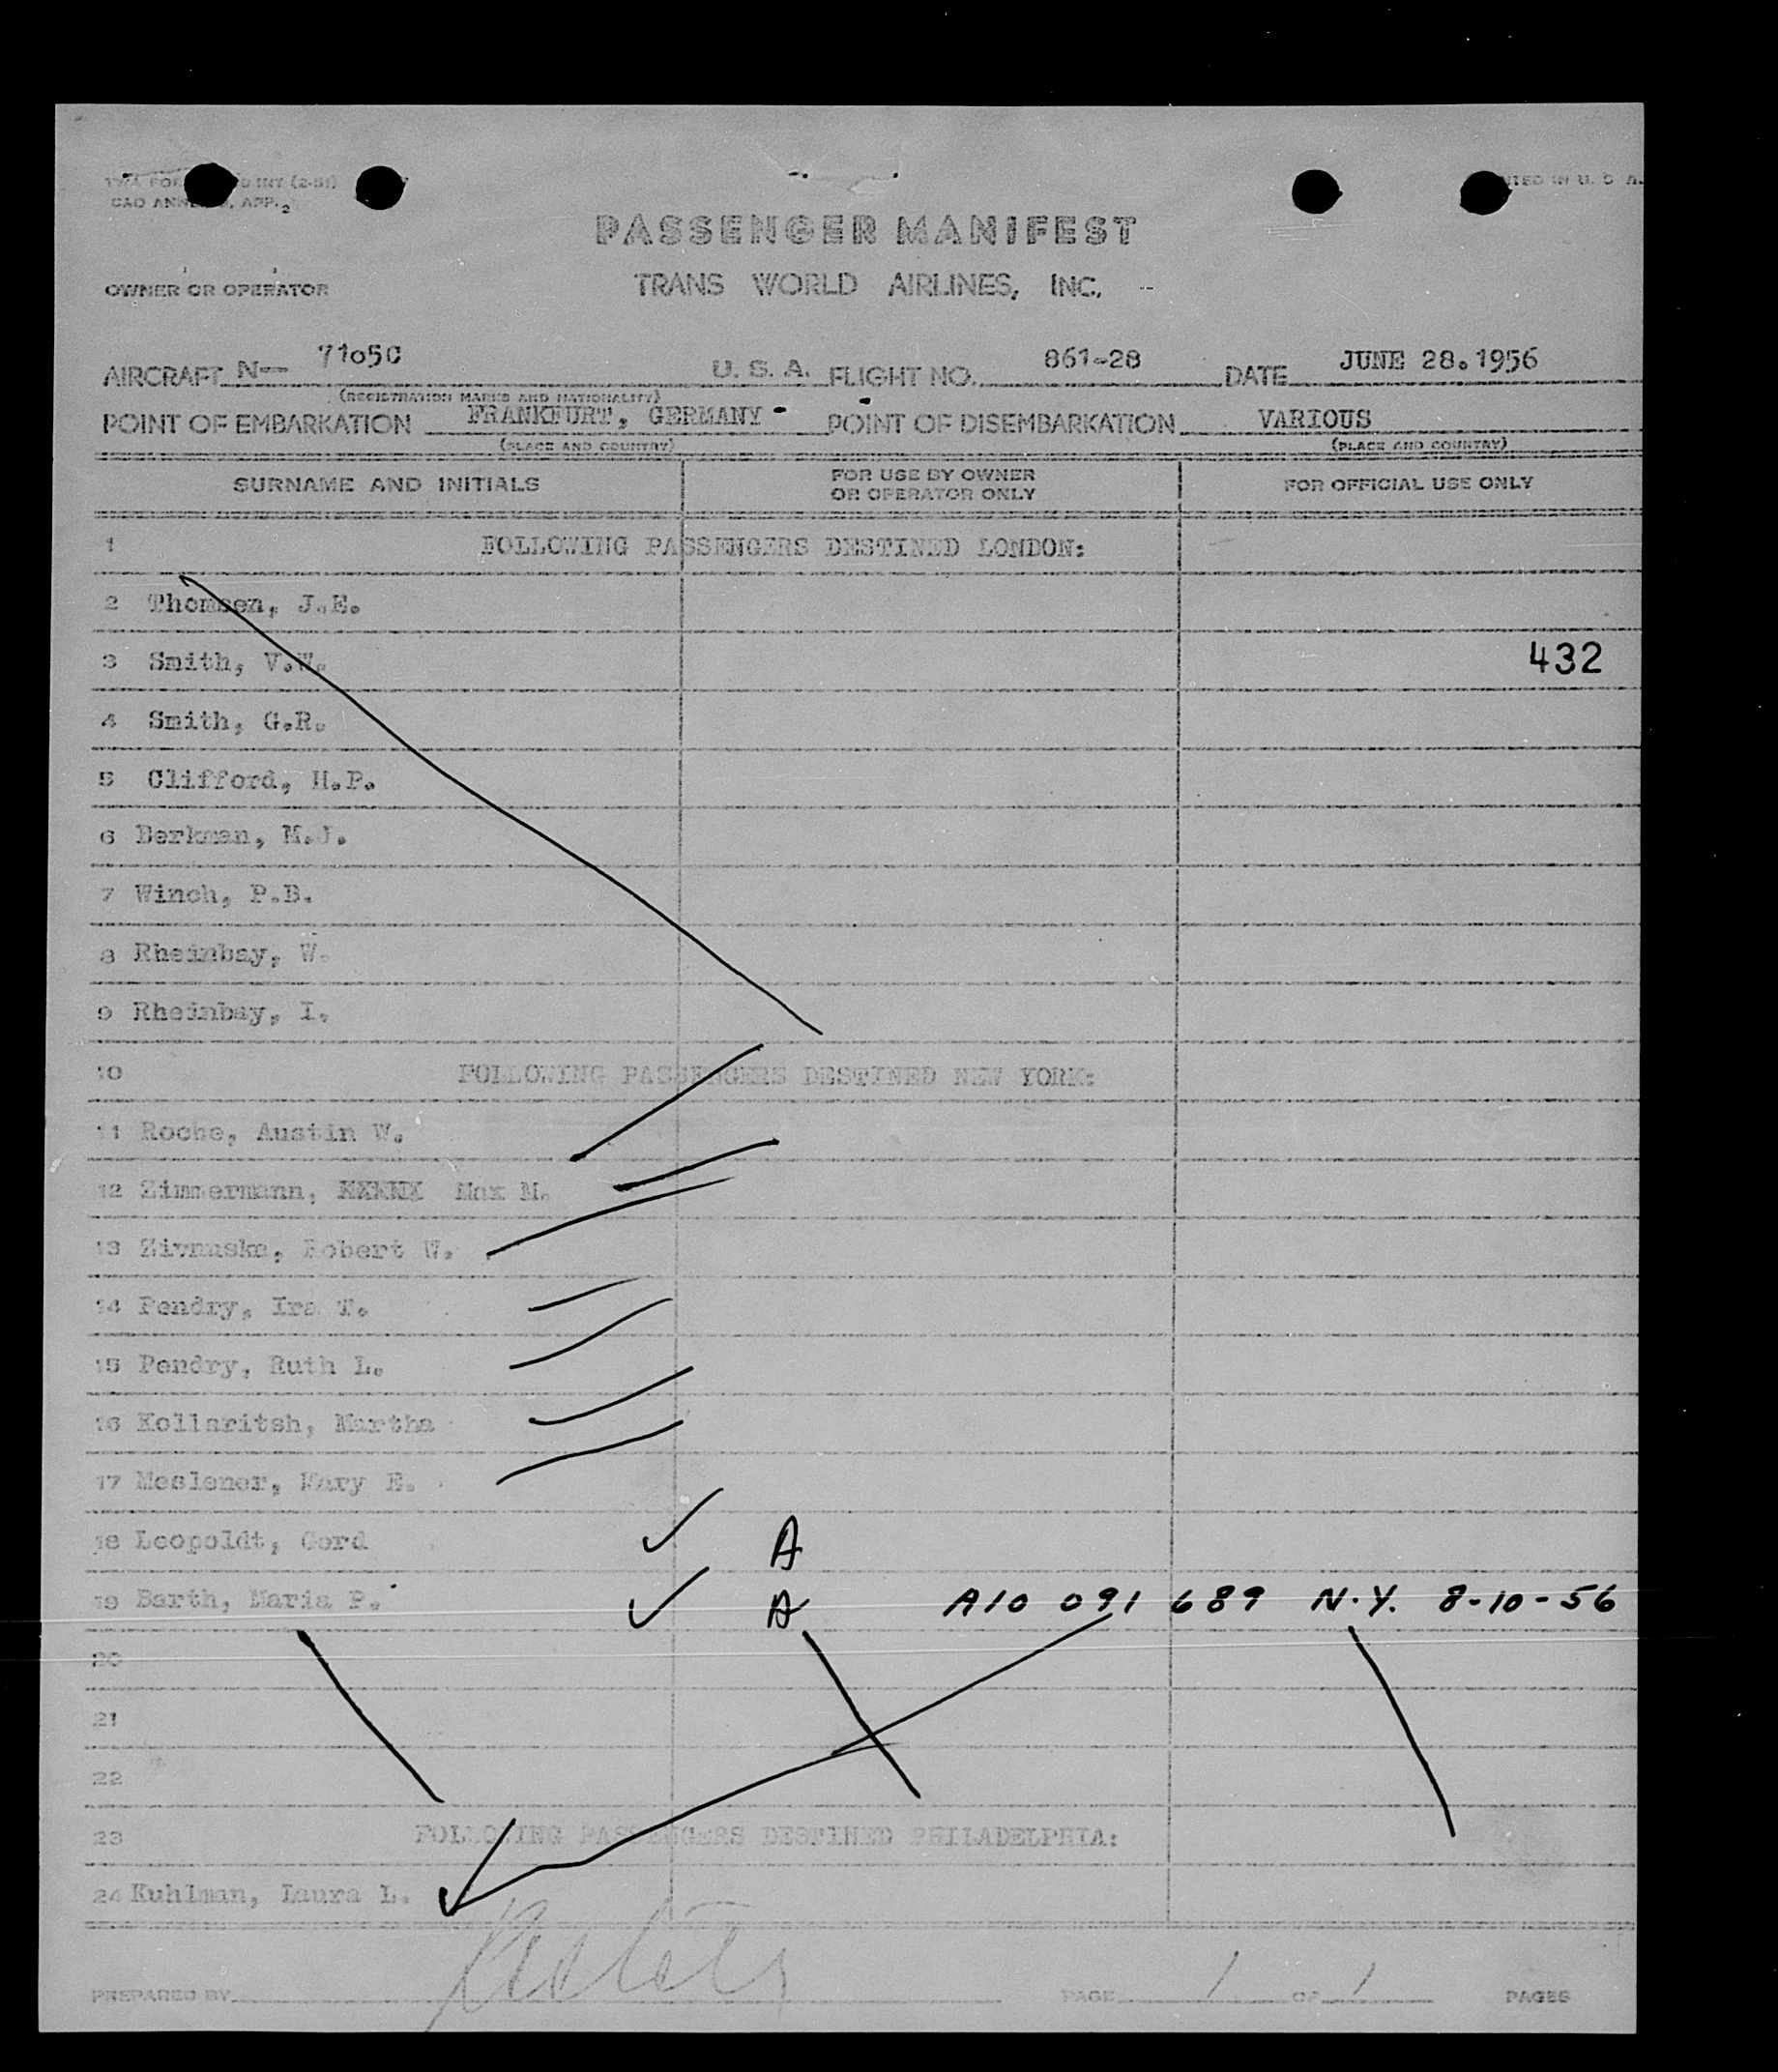 CAO ANN APP. 2
PASSENGER MANIFEST
TRANS WORLD AIRLINES, INC.
OWNER OR OPERATOR
AIRCRAFT N— 7105C U. S. A. FLIGHT NO. 861-28 DATE JUNE 28.1956
(REGISTRATION MARKS AND NATIONALITY)
POINT OF EMBARKATION FRANKFURT, GERMANY - POINT OF DISEMBARKATION VARIOUS
(PLACE AND COUNTRY) (PLACE AND COUNTRY)
SURNAME AND INITIALS FOR USE BY OWNER OR OPERATOR ONLY FOR OFFICIAL USE ONLY
1 FOLLOWING PASSENGERS DESTINED LONDON:
2 Thomsen, J.E.
3 Smith, V.W. 432
4 Smith, G.R.
5 Clifford, H.P.
6 Berkman, M.J.
7 Winch, P.B.
8 Rheinbay, W.
9 Rheinbay, I.
10 FOLLOWING PASSENGERS DESTINED NEW YORK:
11 Roche, Austin W.
12 Zimmermann, Max M.
13 Zivnuska, Robert W.
14 Pendry, Ira T.
15 Pendry, Ruth L.
16 Kollaritsh, Martha
17 Meslener, Mary E.
18 Leopoldt, Gerd A
19 Barth, Maria P. A A10 091 689 N.Y. 8-10-56
20
21
22
23 FOLLOWING PASSENGERS DESTINED PHILADELPHIA:
24 Kuhlman, Laura L.
PREPARED BY PAGE 1 OF 1 PAGES